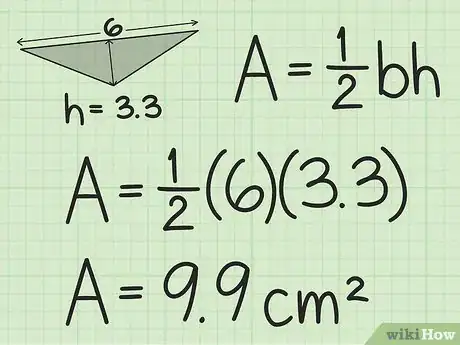 6
h = 3.3
A = 1/2 bh
A = 1/2 (6)(3.3)
A = 9.9 cm²
wikiHow